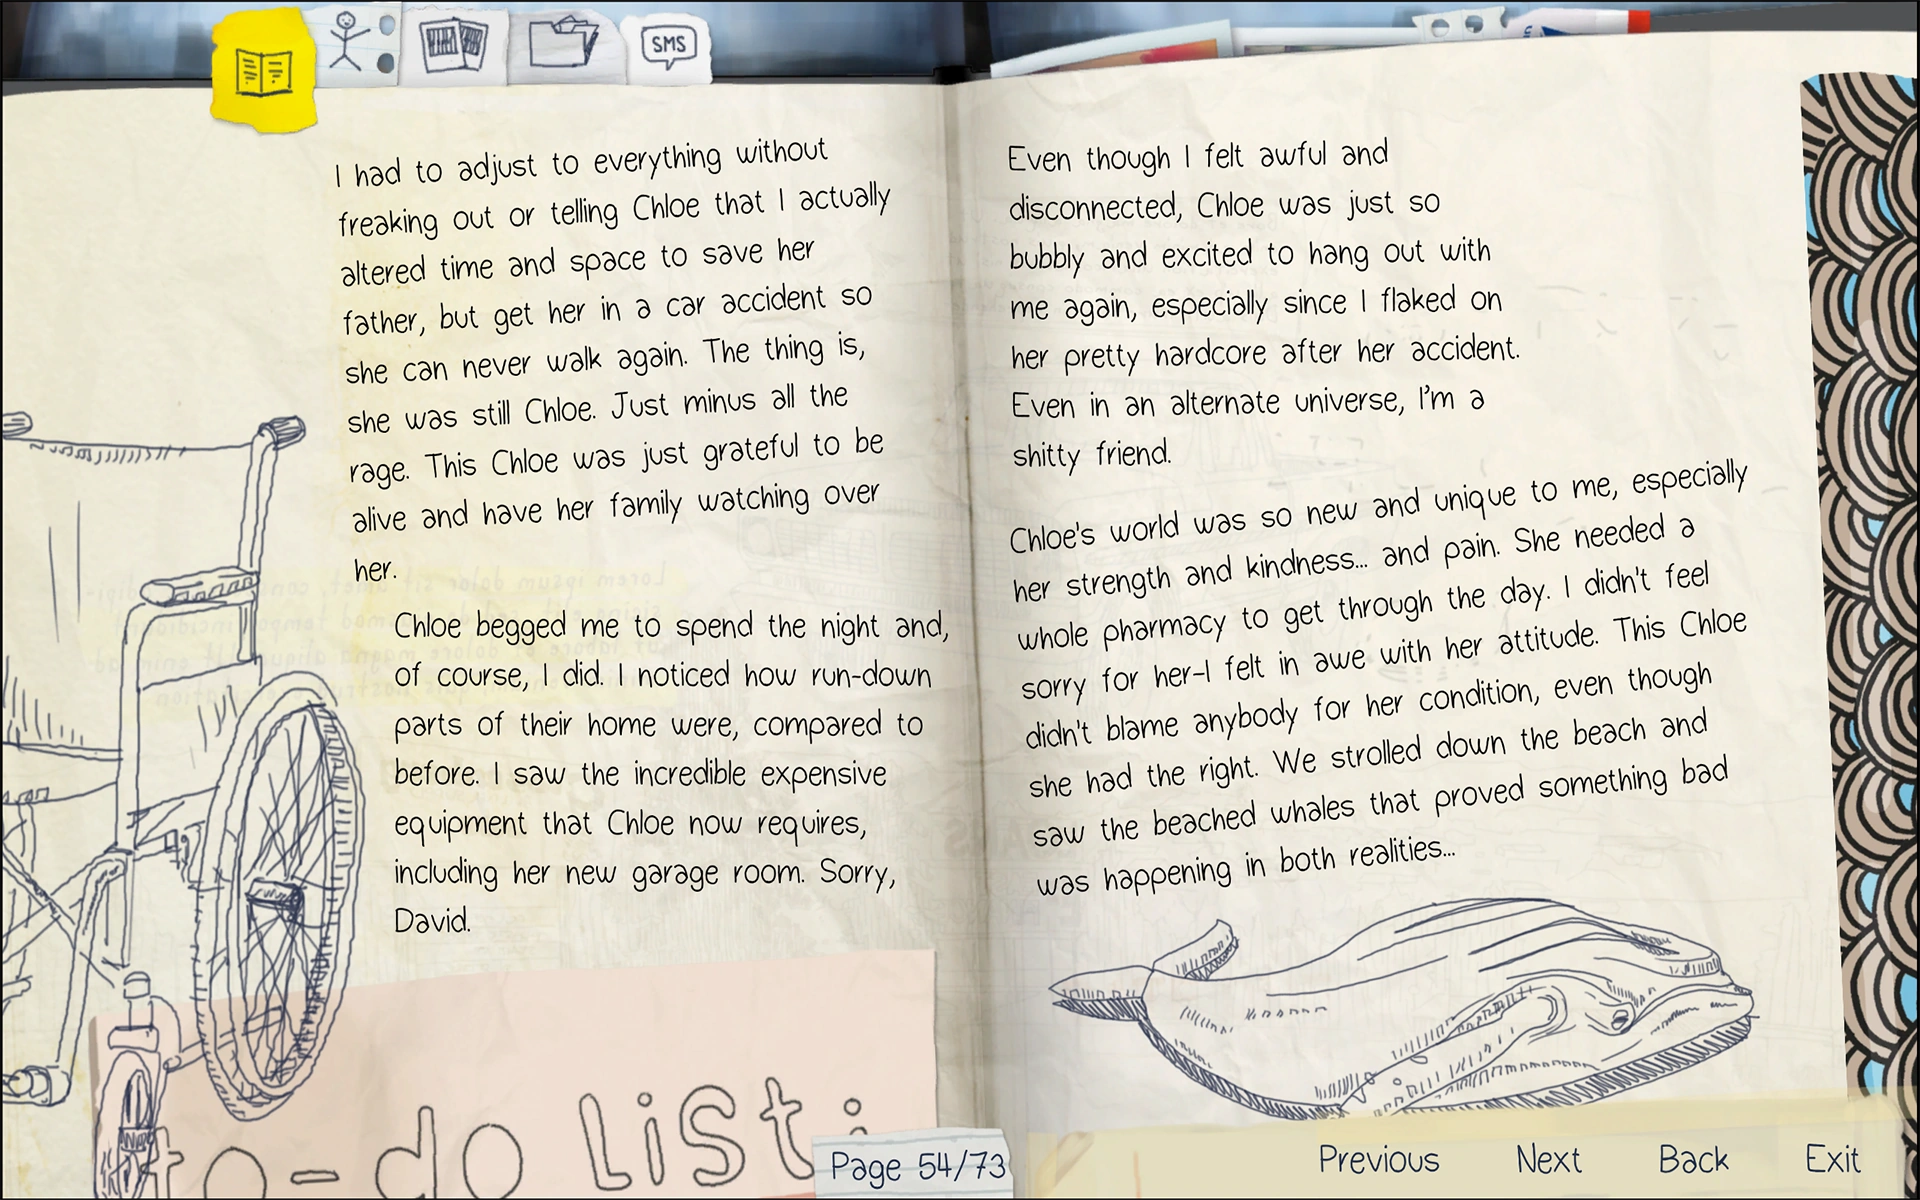 SMS
I had to adjust to everything without
freaking out or telling Chloe that I actually
altered time and space to save her
father, but get her in a car accident so
she can never walk again. The thing is,
she was still Chloe. Just minus all the
rage. This Chloe was just grateful to be
alive and have her family watching over
her.
Chloe begged me to spend the night and,
of course, I did. I noticed how run-down
parts of their home were, compared to
before. I saw the incredible expensive
equipment that Chloe now requires,
including her new garage room. Sorry,
David.
to-do LiST:
Even though I felt awful and
disconnected, Chloe was just so
bubbly and excited to hang out with
me again, especially since I flaked on
her pretty hardcore after her accident.
Even in an alternate universe, I'm a
shitty friend.
Chloe's world was so new and unique to me, especially
her strength and kindness... and pain. She needed a
whole pharmacy to get through the day. I didn't feel
sorry for her-I felt in awe with her attitude. This Chloe
didn't blame anybody for her condition, even though
she had the right. We strolled down the beach and
saw the beached whales that proved something bad
was happening in both realities...
Page 54/73
Previous Next Back Exit